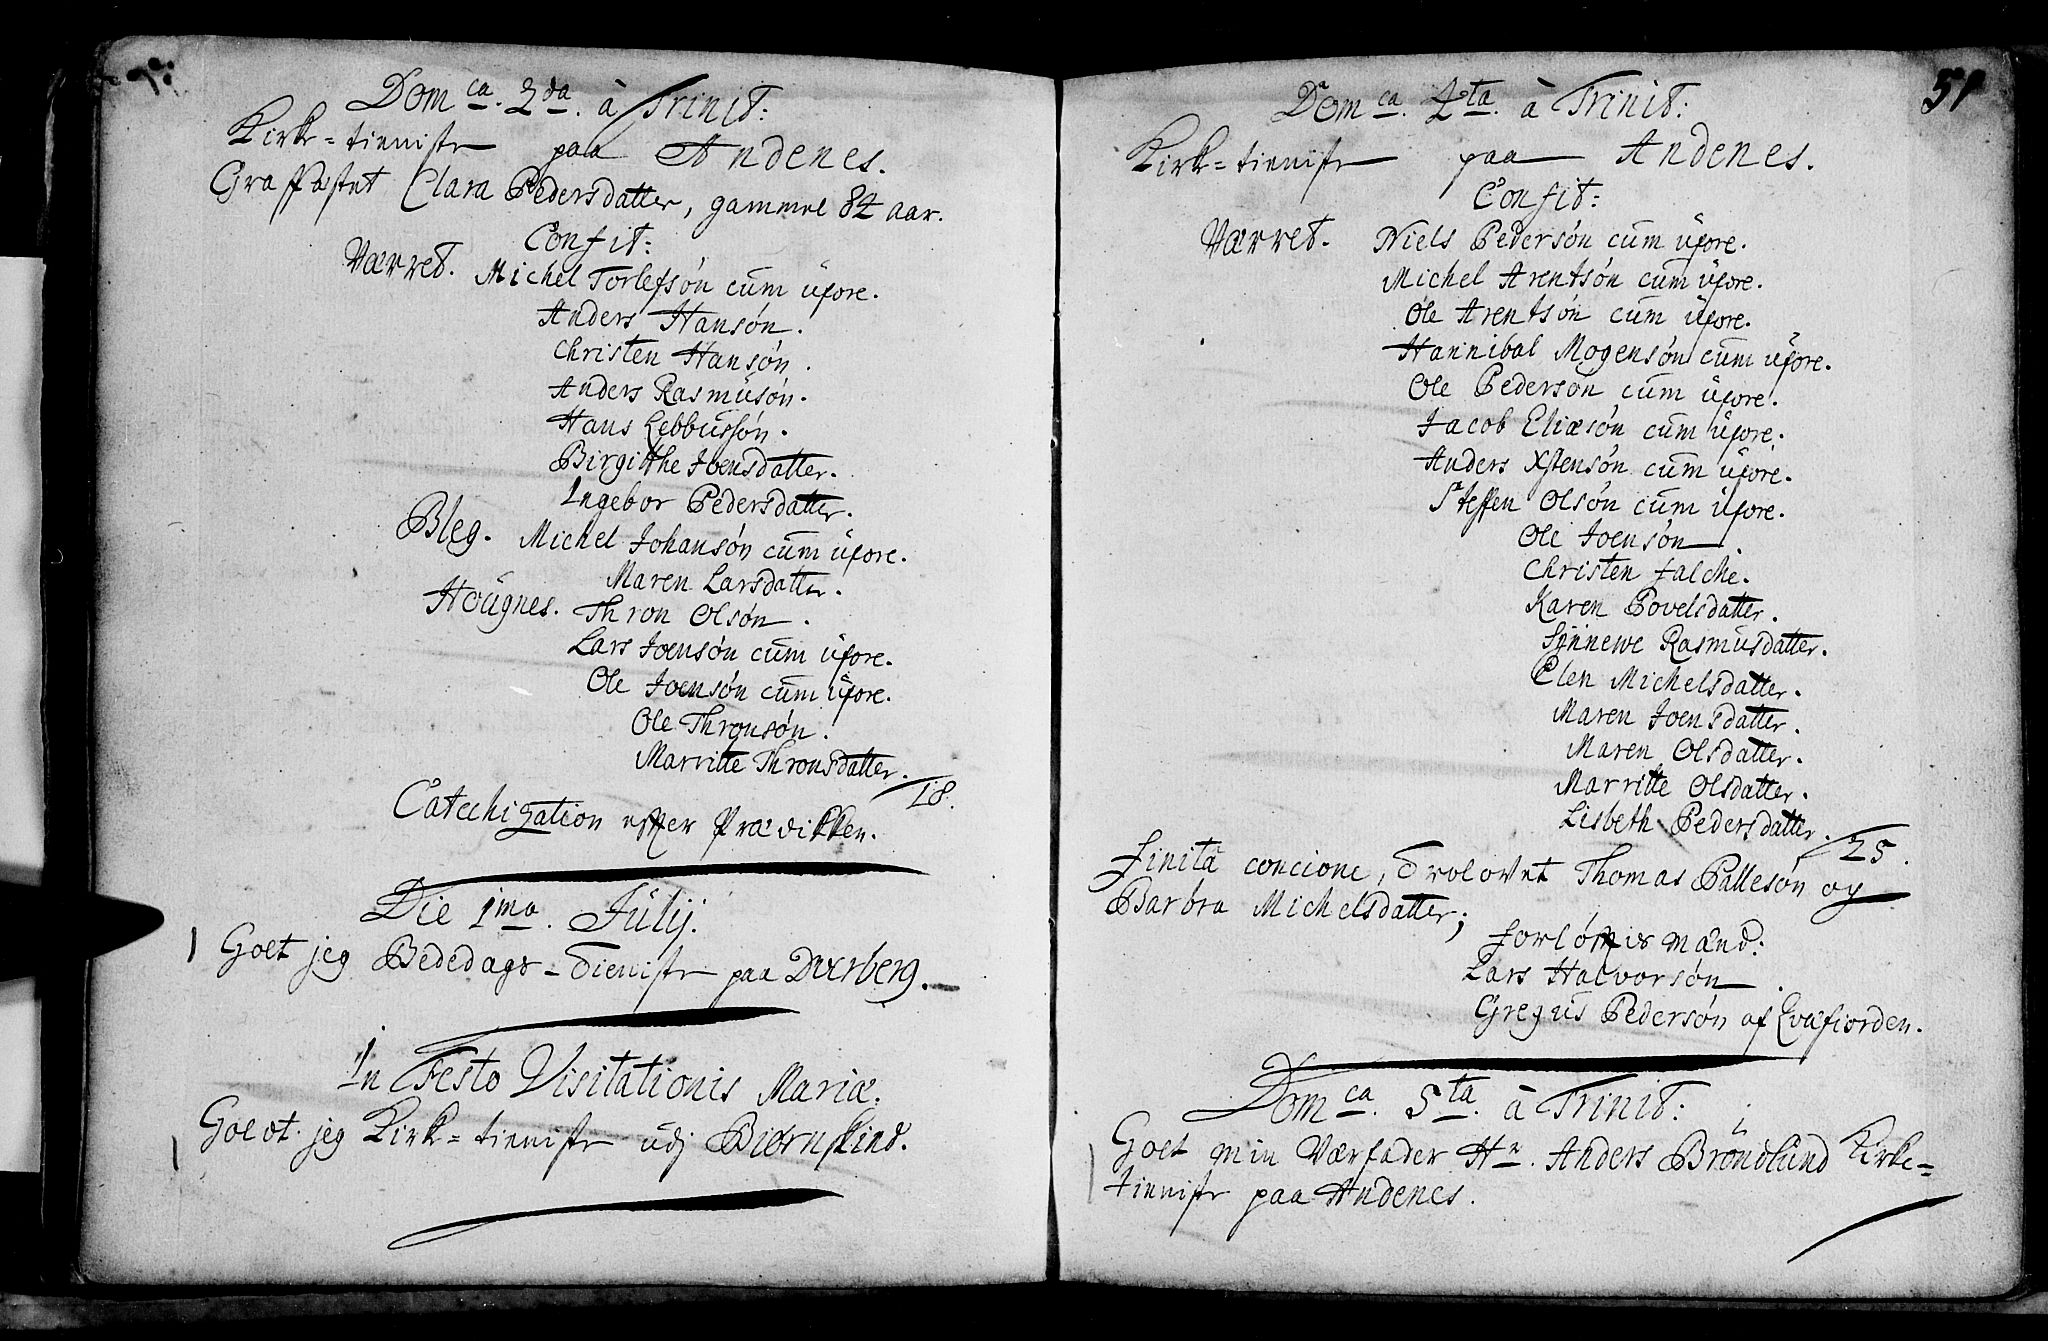 Dom ca. 2da. à Trinit:
Kirke=tieniste paa Andenes.
Graffæstet Clara Pedersdatter, gammel 84 aar.
Confit:
Værret. Michel Torlefsón cum üxore.
Anders Hansón.
Christen Hansón.
Anders Rasmüsón.
Hans Lebbussón.
Birgitthe Joensdatter.
Ingebor Pedersdatter.
Bleg. Michel Johansón cum üxore.
Maren Larsdatter.
Höügnes. Thron Olsón.
Lars Joensón cum üxore.
Ole Joensón cum üxore.
Ole Thronsón.
Marritte Thronsdatter.
18.
Catechization efter Prædikken.
Die 1ma. Jülij.
Golt jeg Bededags-Tieniste paa Dverberg.
In Festo Visitationis Mariæ.
Goldt jeg Kirke=tieniste udj Biørnskind.
51
Dom ca. 4ta. à Trinit:
Kirke=tieniste paa Andenes.
Confit:
Værret. Niels Pedersón cum üxore.
Michel Arentsón cum üxore.
Ole Arentsón cum üxore.
Hannibal Mogensón cum üxore.
Ole Pedersón cum üxore.
Jacob Eliæsón cum üxore.
Anders Xstensón cum üxore.
Steffen Olsón cum üxore.
Ole Joensón.
Christen Falche.
Karen Povelsdatter.
Sinnewe Rasmusdatter.
Elen Michelsdatter.
Maren Joensdatter.
Maren Olsdatter.
Marritte Olsdatter.
Lisbeth Pedersdatter.
25.
Finita concione, Trolovet Thomas Pallesón og
Barbra Michelsdatter;
Forlófvis mænd:
Lars Halvorsón.
Gregus Pedersón af Evæfiorden.
Dom ca. 5ta. à Trinit:
Golt min Værfader Hr. Anders Bröndlünd Kirke=
tieniste paa Andenes.